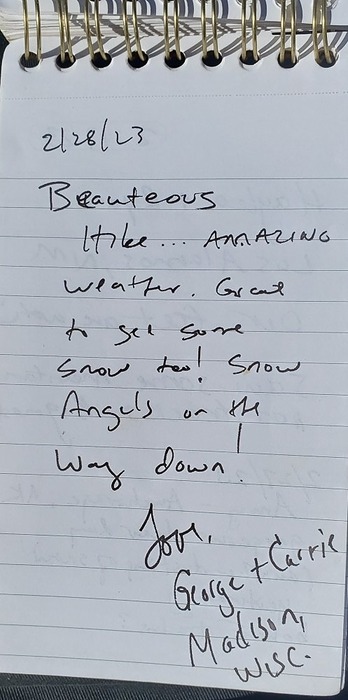 2/28/23
Beauteous
Hike... AMAZING
weather. Great
to get some
snow too! Snow
Angels on the
way down!
Love,
George + Carrie
Madison,
WISC.